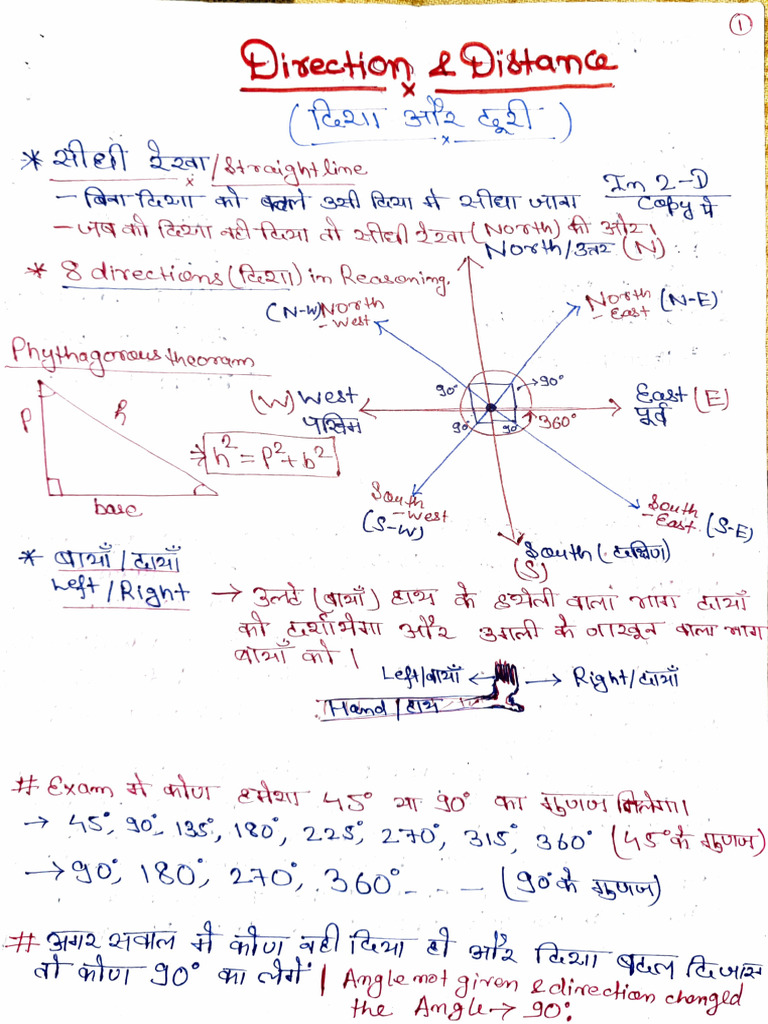 1
Direction & Distance
(दिशा और दूरी)
* सीधी रेखा / Straight line
- बिना दिशा को बदले उसी दिशा मे सीधा जाना
In 2-D
Copy पे
- जब को दिशा नही दिया तो सीधी रेखा (North) की ओर।
North/उत्तर (N)
* 8 directions (दिशा) in Reasoning.
(N-W) North
- West
North (N-E)
- East
Phythagorous theoram
P
h
base
⇒ h² = P² + b²
(W) West
पश्चिम
90°
90°
90°
90°
360°
East (E)
पूर्व
South
- West
(S-W)
South
- East (S-E)
South (दक्षिण)
(S)
* बायाँ / दायाँ
Left / Right → उलटे (बायाँ) हाथ के हथेली वाला भाग दायाँ
को दर्शायेगा और उगली के नाखून वाला भाग
बायाँ को।
Left/बायाँ ← → Right/दायाँ
Hand / हाथ
# Exam मे कोण हमेशा 45° या 90° का गुणज मिलेगा।
→ 45°, 90°, 135°, 180°, 225°, 270°, 315°, 360° (45° के गुणज)
→ 90°, 180°, 270°, 360° - - - - (90° के गुणज)
# अगर सवाल मे कोण नही दिया हो और दिशा बदल दिजाए
तो कोण 90° का लेगें | Angle not given & direction changed
the Angle → 90°.